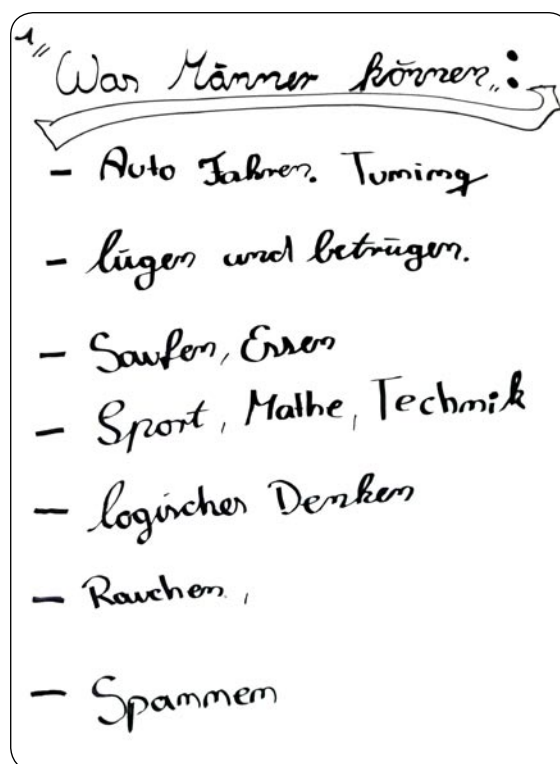 1" Was Männer können":
- Auto Fahren. Tuning
- lügen und betrügen.
- Saufen, Essen
- Sport, Mathe, Technik
- logisches Denken
- Rauchen,
- Spammen